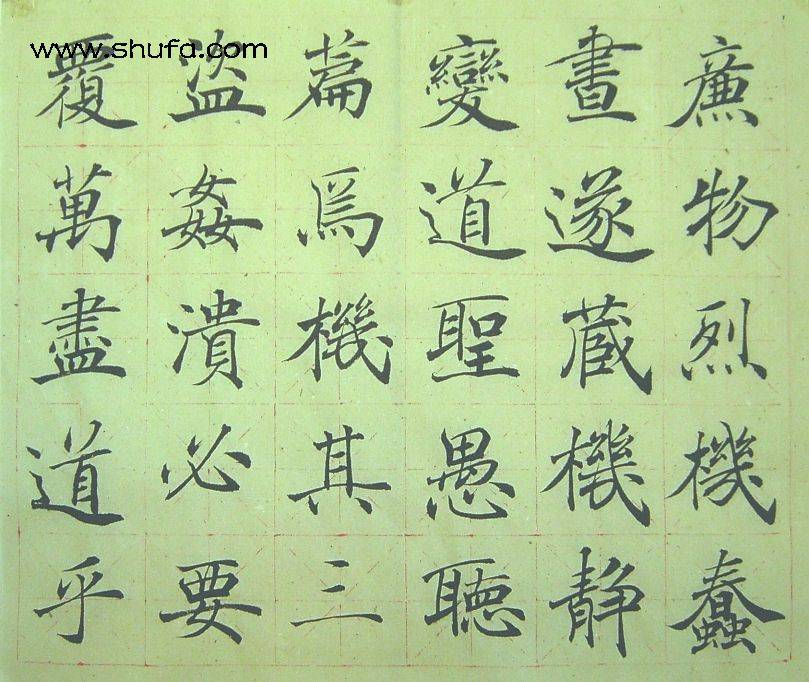 www.shufa.com
廉物烈機蠢
晝遂蔵機静
變道聖愚聴
篇爲機其三
盜姦潰必要
覆萬盡道乎